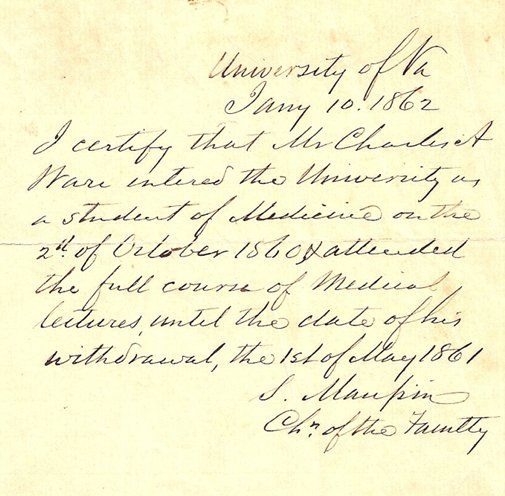 University of Va
Jany 10. 1862
I certify that Mr Charles A
Ware intered the University as
a student of Medicine on the
2d. of October 1860 & attended
the full course of Medical
lectures, until the date of his
withdrawal, the 1st of May 1861
S. Maupin
Chn. of the Faculty